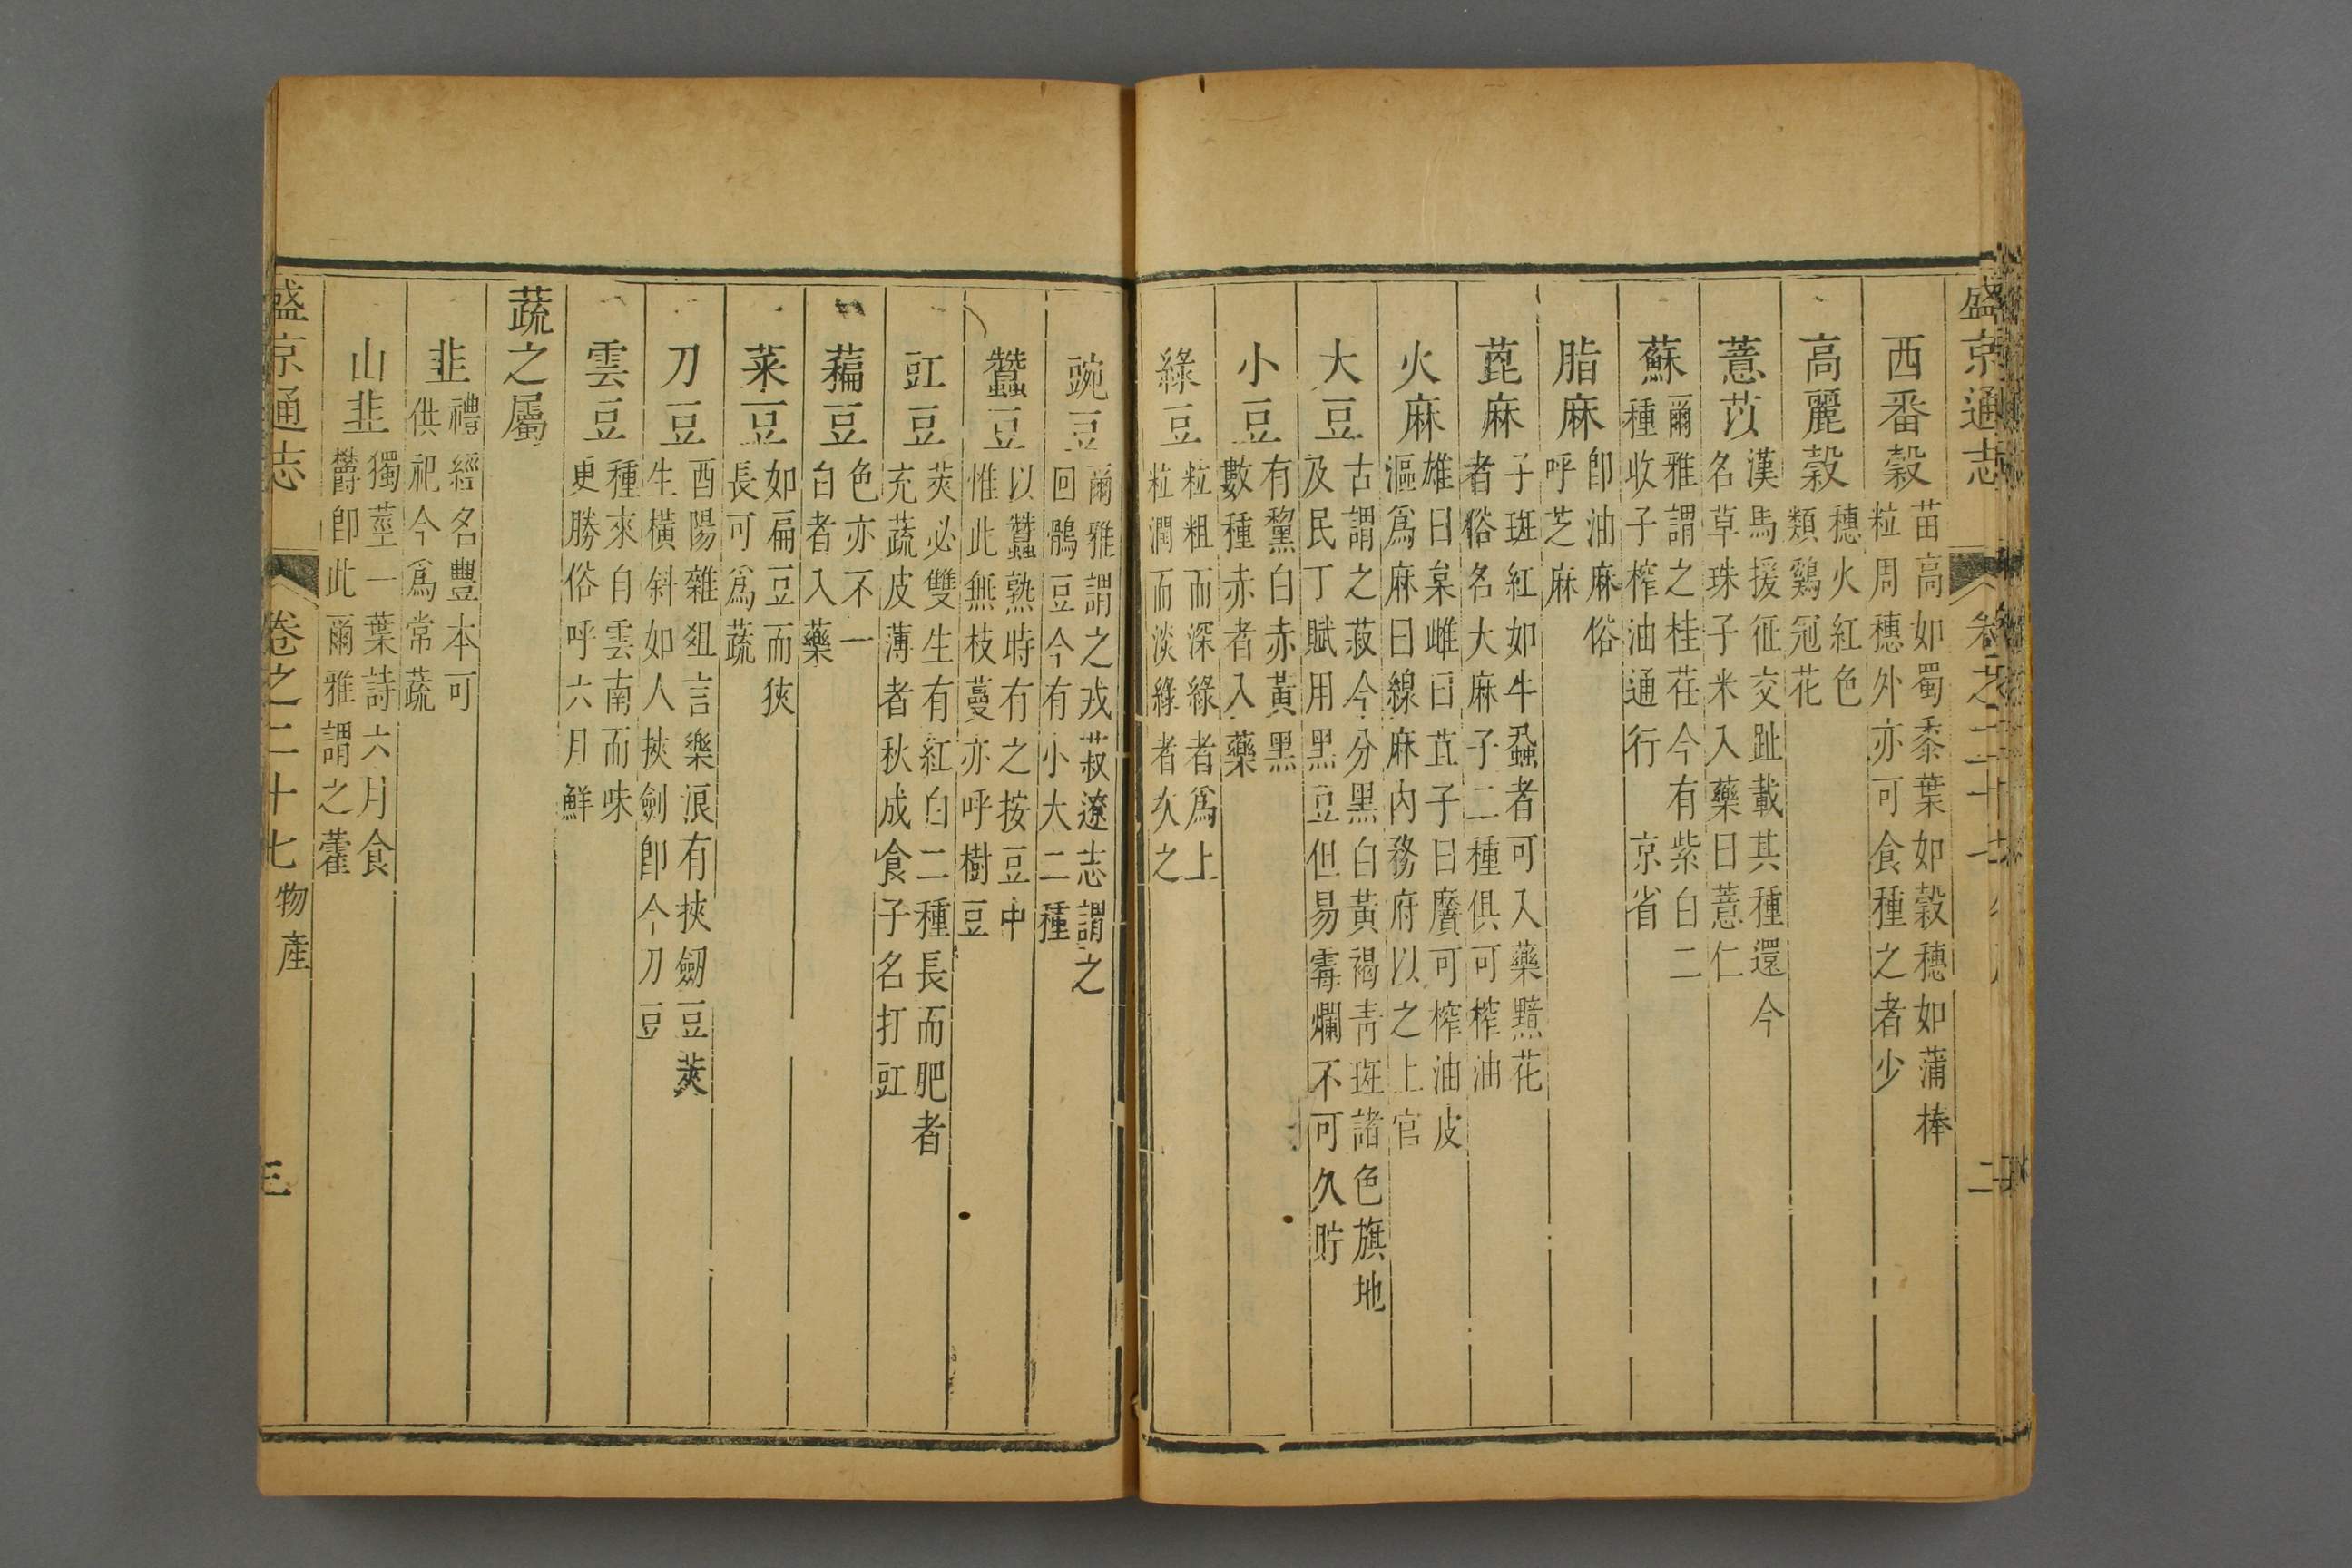 盛京通志 卷之二十七 二
西番穀 苗高如蜀黍葉如穀穗如蒲棒
粒周穗外亦可食種之者少
高麗穀 穗火紅色
類鷄冠花
薏苡 漢馬援征交趾載其種還今
名草珠子米入藥曰薏仁
蘇 爾雅謂之桂荏今有紫白二
種收子榨油通行 京省
脂麻 卽油麻俗
呼芝麻
萞麻 子斑紅如牛蝨者可入藥黲花
者俗名大麻子二種俱可榨油
火麻 雄曰枲雌曰苴子曰黂可榨油皮
漚爲麻曰線麻內務府以之上官
大豆 古謂之菽今分黑白黃褐靑斑諸色旗地
及民丁賦用黑豆但易霉爛不可久貯
小豆 有黧白赤黃黑
數種赤者入藥
綠豆 粒粗而深綠者爲上
粒潤而淡綠者次之
豌豆 爾雅謂之戎菽遼志謂之
回鶻豆今有小大二種
蠶豆 以蠶熟時有之按豆中
惟此無枝蔓亦呼樹豆
豇豆 莢必雙生有紅白二種長而肥者
充蔬皮薄者秋成食子名打豇
藊豆 色亦不一
白者入藥
菜豆 如扁豆而狹
長可爲蔬
刀豆 酉陽雜俎言樂浪有挾劒豆莢
生橫斜如人挾劍卽今刀豆
雲豆 種來自雲南而味
更勝俗呼六月鮮
蔬之屬
韭 禮經名豐本可
供祀今爲常蔬
山韭 獨莖一葉詩六月食
欝卽此爾雅謂之藿
盛京通志 卷之二十七 物產 三